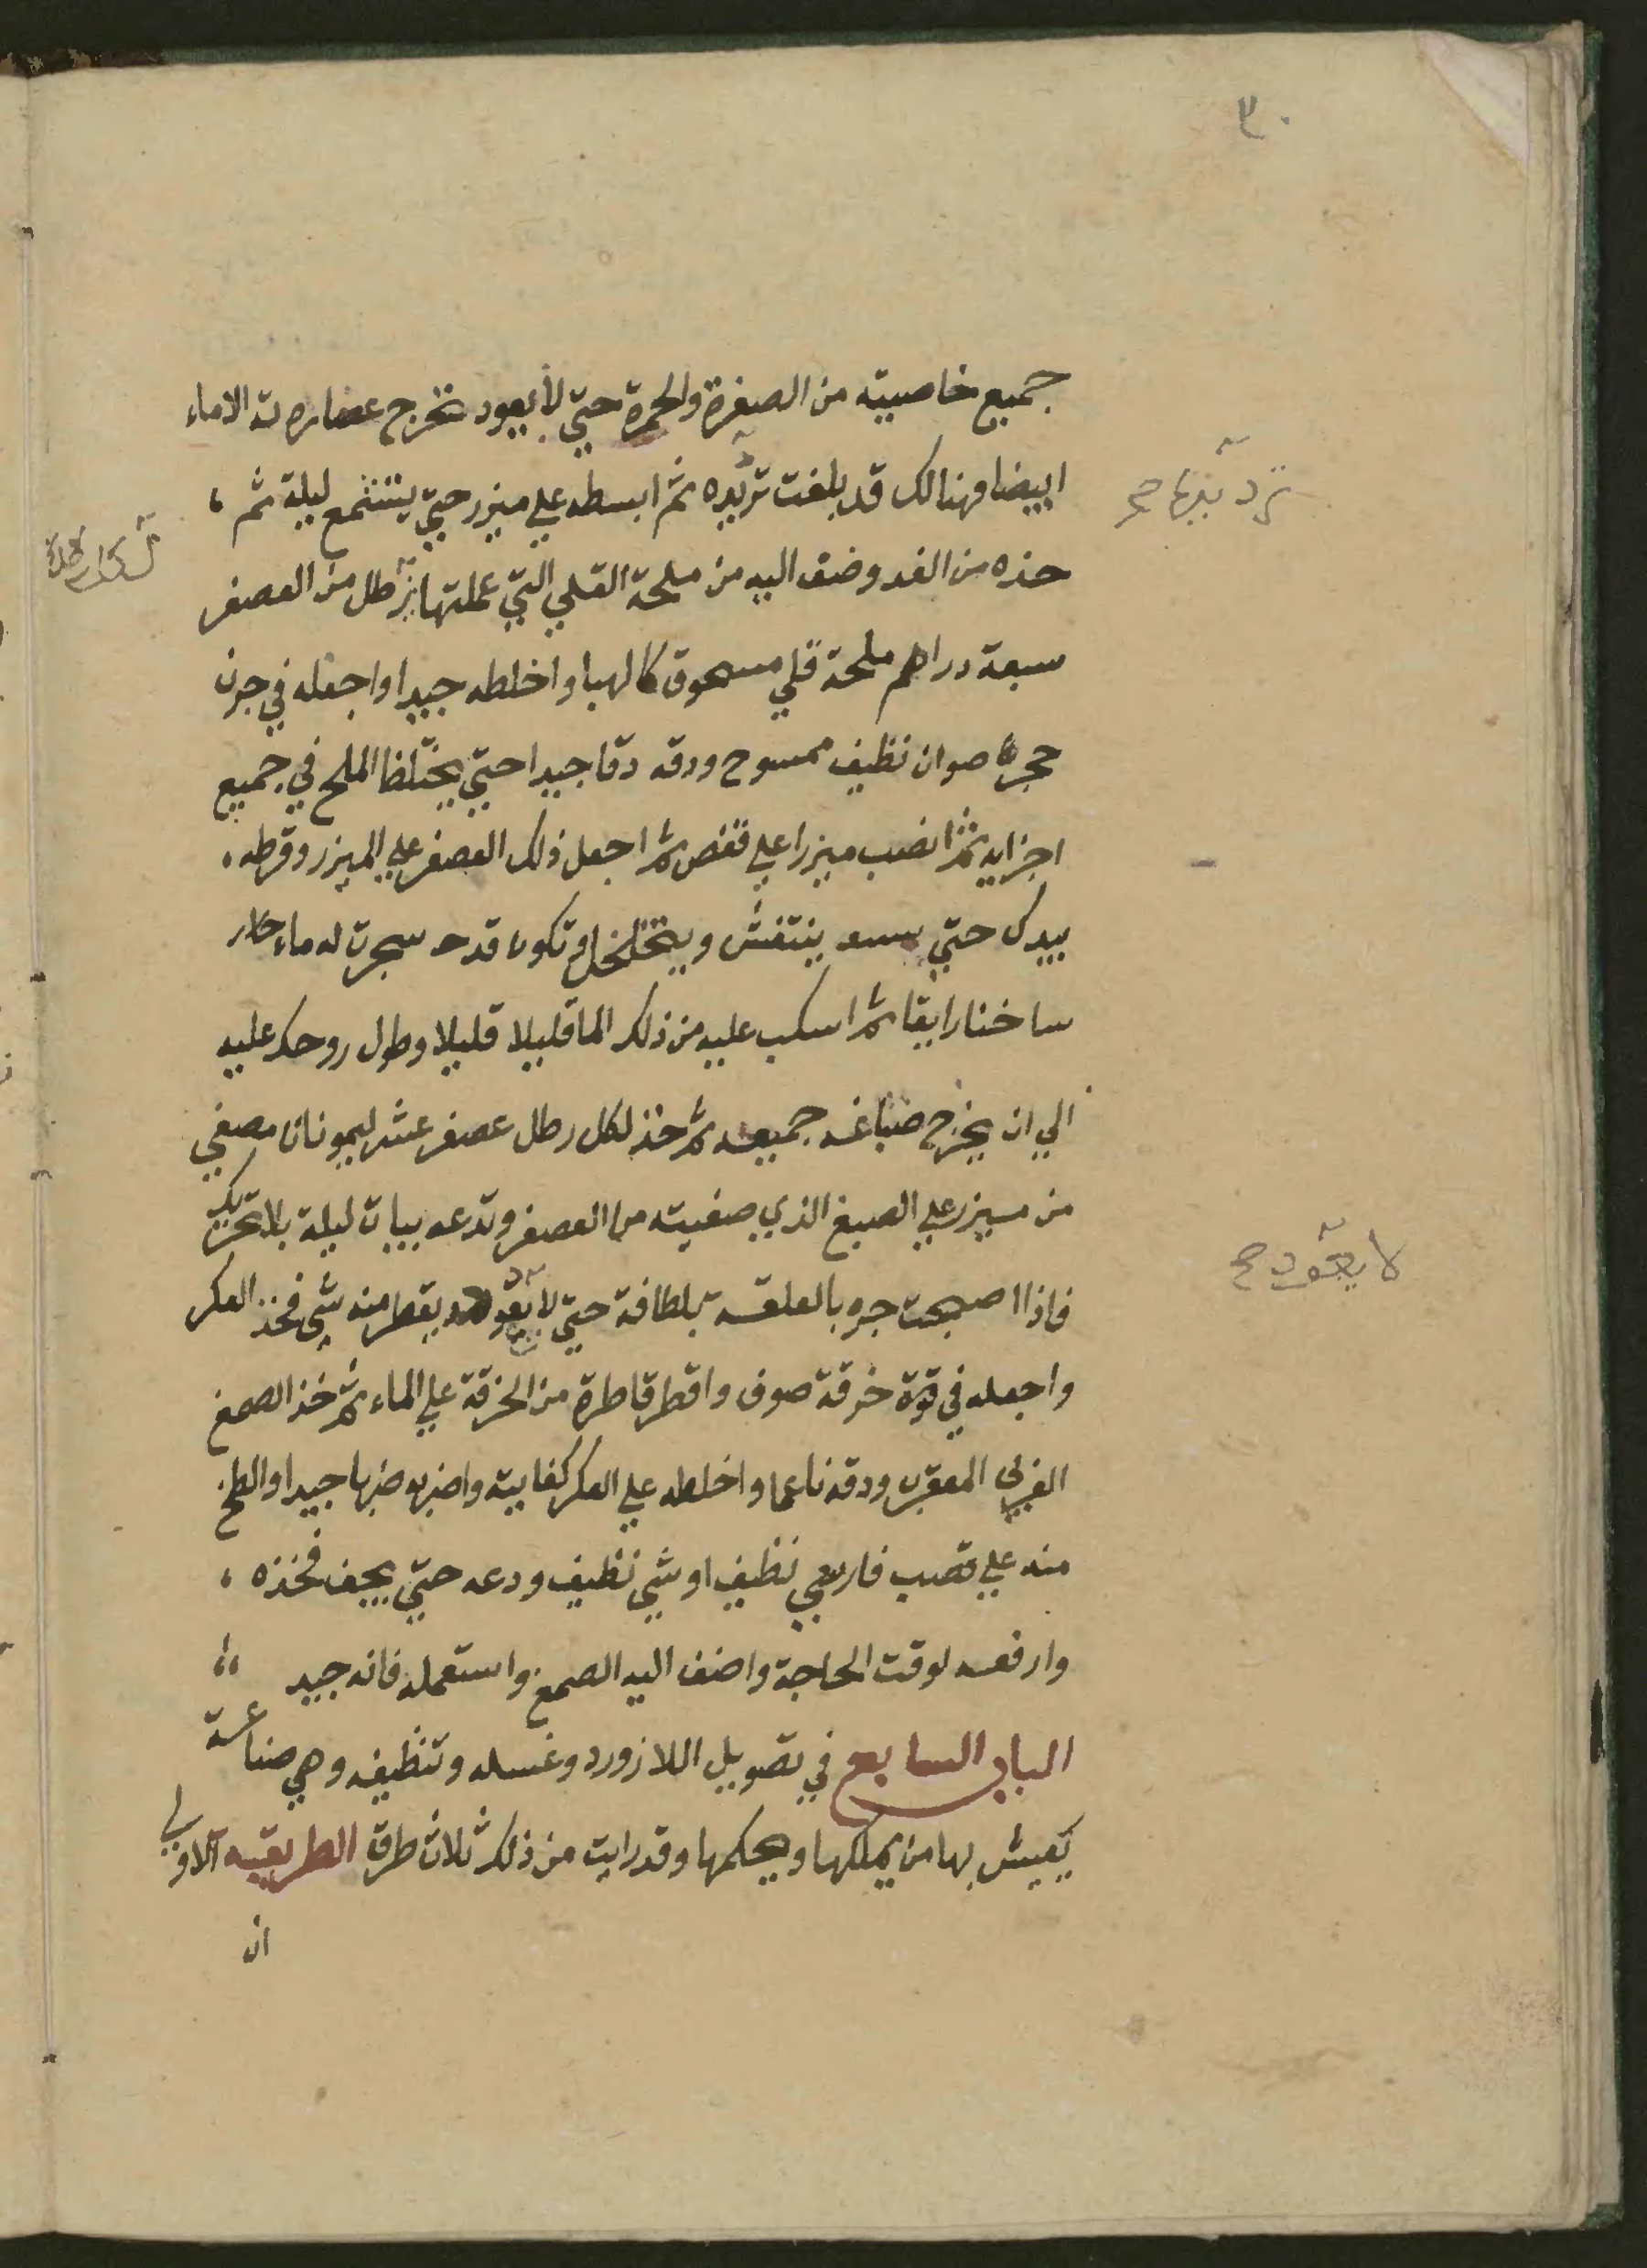 ٣٠
جميع خاصيته من الصفرة والحمرة حتي لا يعود تخرج عصارته الا ماء
ابيضا وهنالك قد بلغت تربده ثم ابسطه علي ميزر حتي يتشمع ليلة ثم
خذه من الغد وضف اليه من ملحة القلي التي عملتها رطل من العصفر
سبعة دراهم ملحة قلي مسحوق كالهبا واخلطه جيدا واجعله في جرن
حجر صوان نظيف ممسوح ودقه دقا جيدا حتي يختلط الملح في جميع
اجزايه ثم انصب ميزرا علي قفص ثم اجعل ذلك العصفر علي الميزر وقرطه
بيدك حتي ينتفش ويتخلخل وتكون قد سجرت له ماء حار
ساخنا رايقا ثم اسكب عليه من ذلك الما قليلا قليلا وطول روحك عليه
الي ان يخرج صباغه جميعه ثم خذ لكل رطل عصفر عشر ليمونات مصفي
من ميزر علي الصبغ الذي صفيته من العصفر وتدعه يبات ليلة بلا تحريك
فاذا اصبحت جره بالعلقه بلطافة حتي لا يعود يقطر منه شي فخذ العكر
واجعله في قوة خرقة صوف واقطر قاطرة من الخرقة علي الماء ثم خذ الصمغ
العربي المعقرب ودقه ناعما واخلطه علي العكر كفايته واضربه ضربا جيدا والطخ
منه علي قصب فارسي نظيف او شي نظيف ودعه حتي يجف فخذه
وارفعه لوقت الحاجة واضف اليه الصمغ واستعمله فانه جيد
الباب السابع في تصويل اللازورد وغسله وتنظيفه وهي صناعة
يعيش بها من يملكها ويحكمها وقد رايت من ذلك ثلاث طرق الطريقه الاولي
ان
لا يعود صح